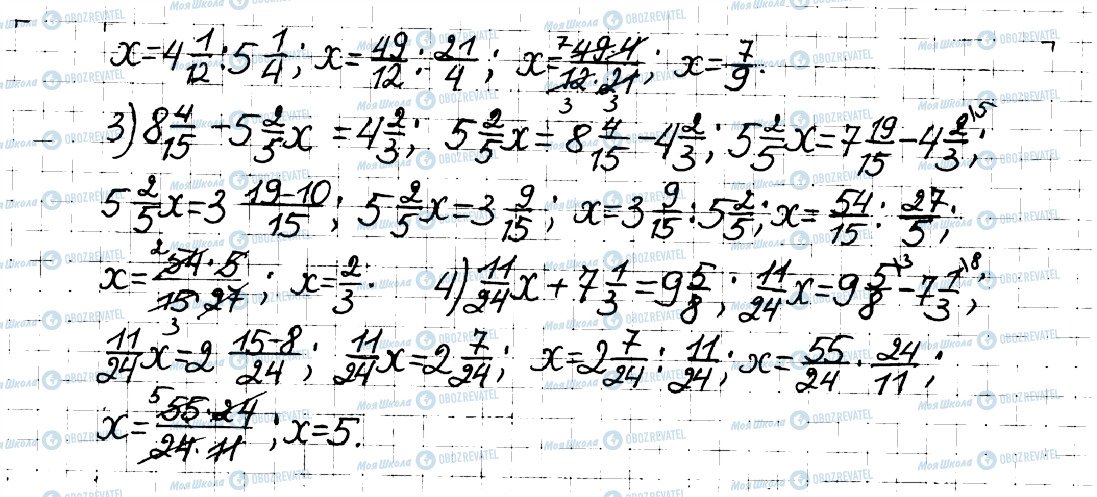 x=4 1/12 : 5 1/4; x= 49/12 : 21/4; x= 49·4/12·21; x= 7/9.
3) 8 4/15 - 5 2/5 x = 4 2/3; 5 2/5 x = 8 4/15 - 4 2/3; 5 2/5 x = 7 19/15 - 4 2/3;
5 2/5 x = 3 19-10/15; 5 2/5 x = 3 9/15; x = 3 9/15 : 5 2/5; x = 54/15 : 27/5;
x = 54·5/15·27; x = 2/3. 4) 11/24 x + 7 1/3 = 9 5/8; 11/24 x = 9 5/8 - 7 1/3;
11/24 x = 2 15-8/24; 11/24 x = 2 7/24; x = 2 7/24 : 11/24; x = 55/24 · 24/11;
x = 55·24/24·11; x = 5.